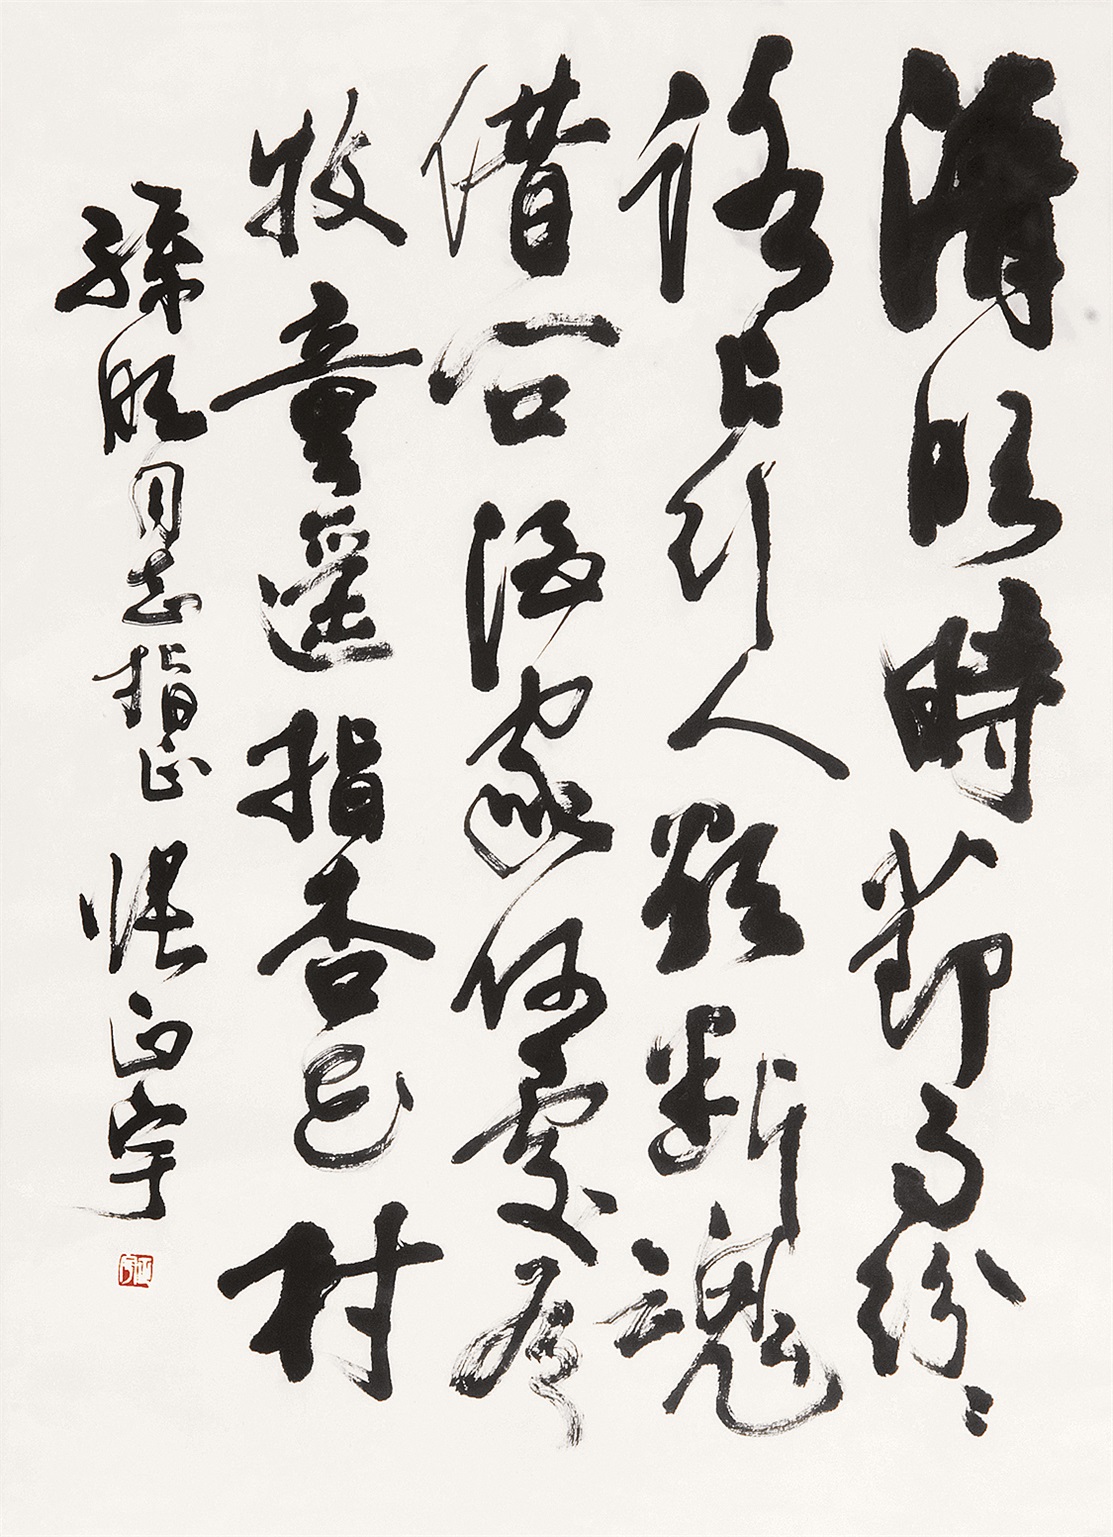 清明時節雨紛〻
路上行人欲斷魂
借問酒家何處有
牧童遙指杏花村
孫明同志指正 張正宇
正宇